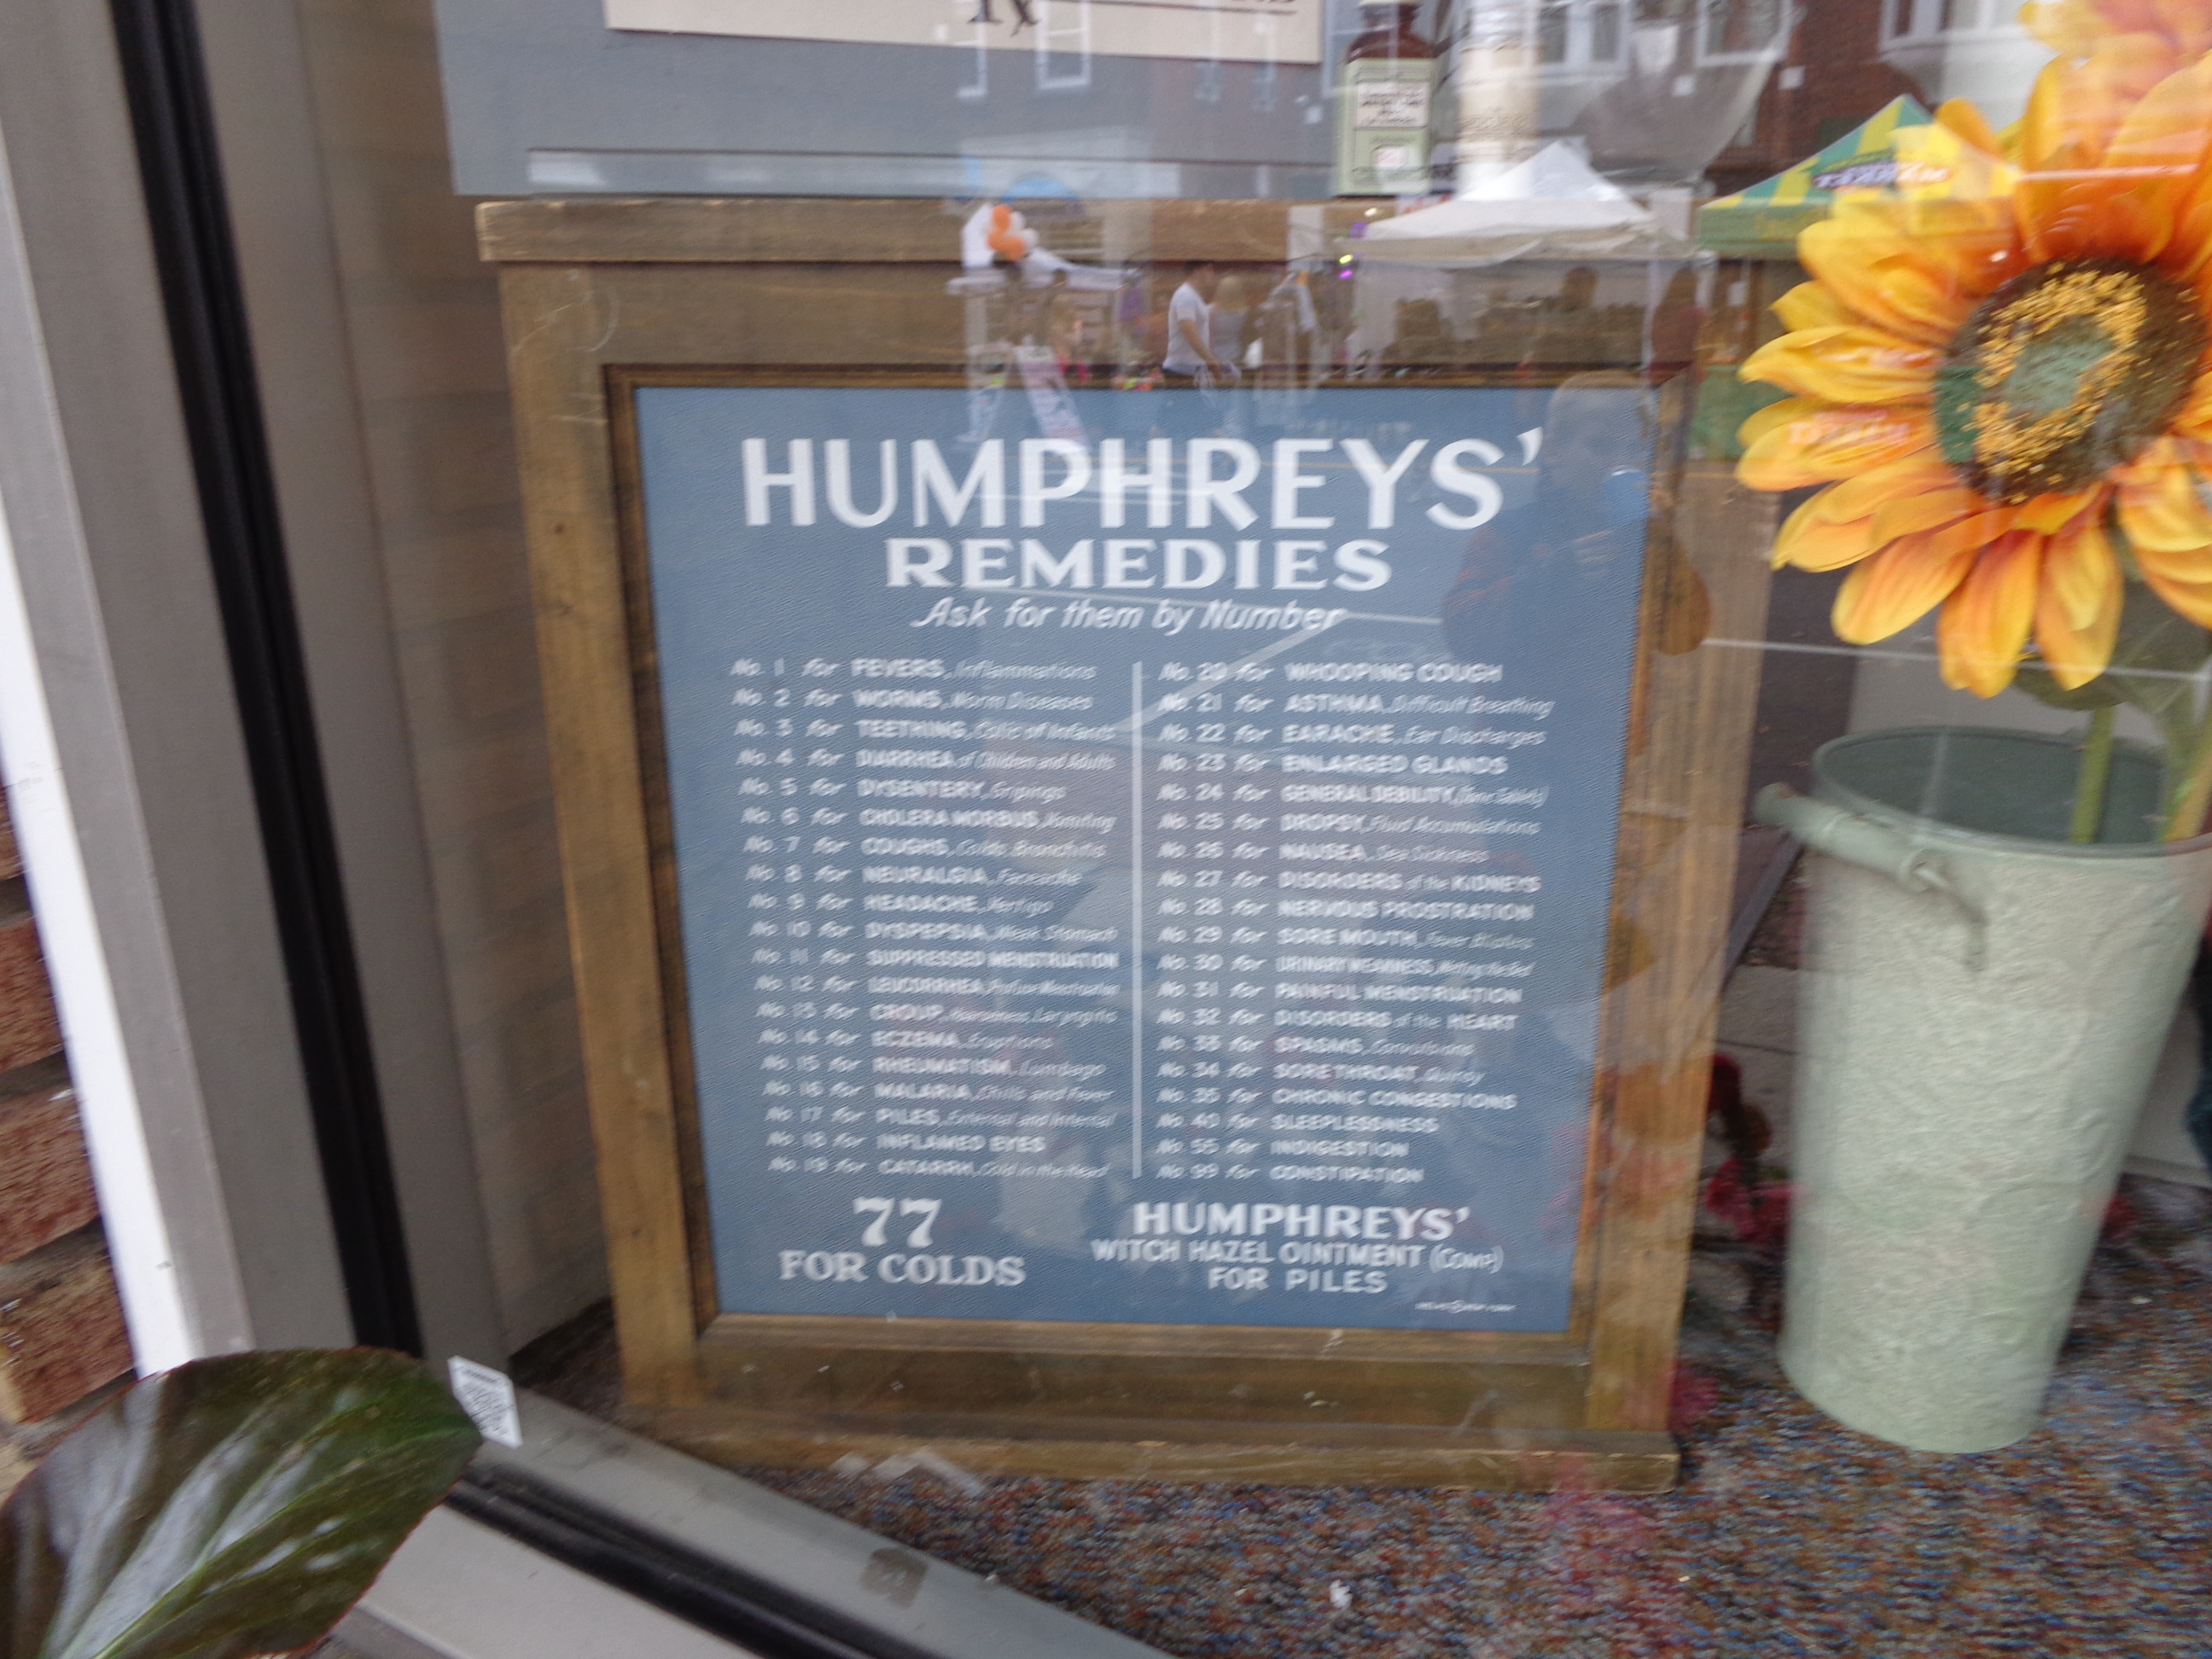 HUMPHREYS'
REMEDIES
Ask for them by Number
No. 1 for FEVERS, Inflammations
No. 2 for WORMS, Worm Diseases
No. 3 for TEETHING, Colic of Infants
No. 4 for DIARRHEA of Children and Adults
No. 5 for DYSENTERY, Gripings
No. 6 for CHOLERA MORBUS, Vomiting
No. 7 for COUGHS, Colds, Bronchitis
No. 8 for NEURALGIA, Faceache
No. 9 for HEADACHE, Vertigo
No. 10 for DYSPEPSIA, Weak Stomach
No. 11 for SUPPRESSED MENSTRUATION
No. 12 for LEUCORRHEA, Profuse Menstruation
No. 13 for CROUP, Hoarseness, Laryngitis
No. 14 for ECZEMA, Eruptions
No. 15 for RHEUMATISM, Lumbago
No. 16 for MALARIA, Chills and Fever
No. 17 for PILES, External and Internal
No. 18 for INFLAMED EYES
No. 19 for CATARRH, Cold in the Head
No. 20 for WHOOPING COUGH
No. 21 for ASTHMA, Difficult Breathing
No. 22 for EARACHE, Ear Discharges
No. 23 for ENLARGED GLANDS
No. 24 for GENERAL DEBILITY,
No. 25 for DROPSY, Fluid Accumulations
No. 26 for NAUSEA, Sea Sickness
No. 27 for DISORDERS of the KIDNEYS
No. 28 for NERVOUS PROSTRATION
No. 29 for SORE MOUTH, Fever Blisters
No. 30 for URINARY WEAKNESS, Wetting the Bed
No. 31 for PAINFUL MENSTRUATION
No. 32 for DISORDERS of the HEART
No. 33 for SPASMS, Convulsions
No. 34 for SORE THROAT, Quinsy
No. 35 for CHRONIC CONGESTIONS
No. 40 for SLEEPLESSNESS
No. 55 for INDIGESTION
No. 99 for CONSTIPATION
77
FOR COLDS
HUMPHREYS'
WITCH HAZEL OINTMENT (COMP)
FOR PILES